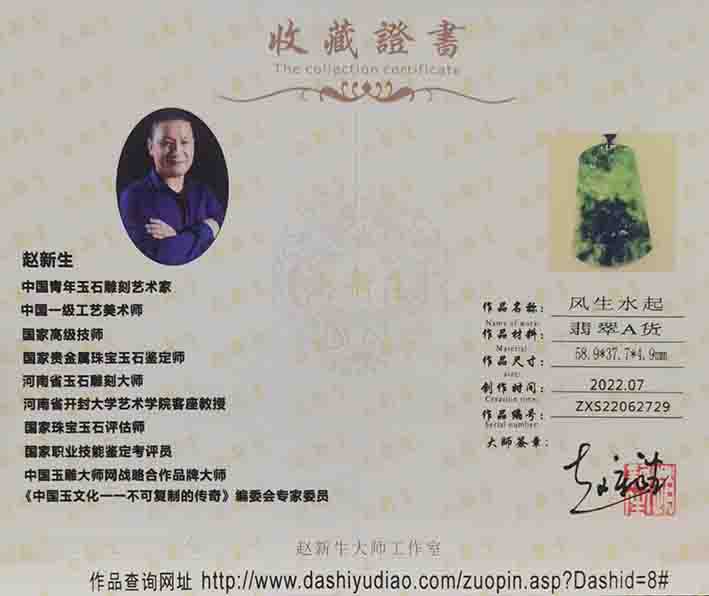 收藏證書
The collection certificate
赵新生
中国青年玉石雕刻艺术家
中国一级工艺美术师
国家高级技师
国家贵金属珠宝玉石鉴定师
河南省玉石雕刻大师
河南省开封大学艺术学院客座教授
国家珠宝玉石评估师
国家职业技能鉴定考评员
中国玉雕大师网战略合作品牌大师
《中国玉文化一一不可复制的传奇》编委会专家委员
作品名称: 风生水起
Name of work:
作品材料: 翡翠A货
Material:
作品尺寸: 58.9*37.7*4.9mm
size:
创作时间: 2022.07
Creation time:
作品编号: ZXS22062729
Serial number:
大师签章:
赵新生大师工作室
作品查询网址 http://www.dashiyudiao.com/zuopin.asp?Dashid=8#